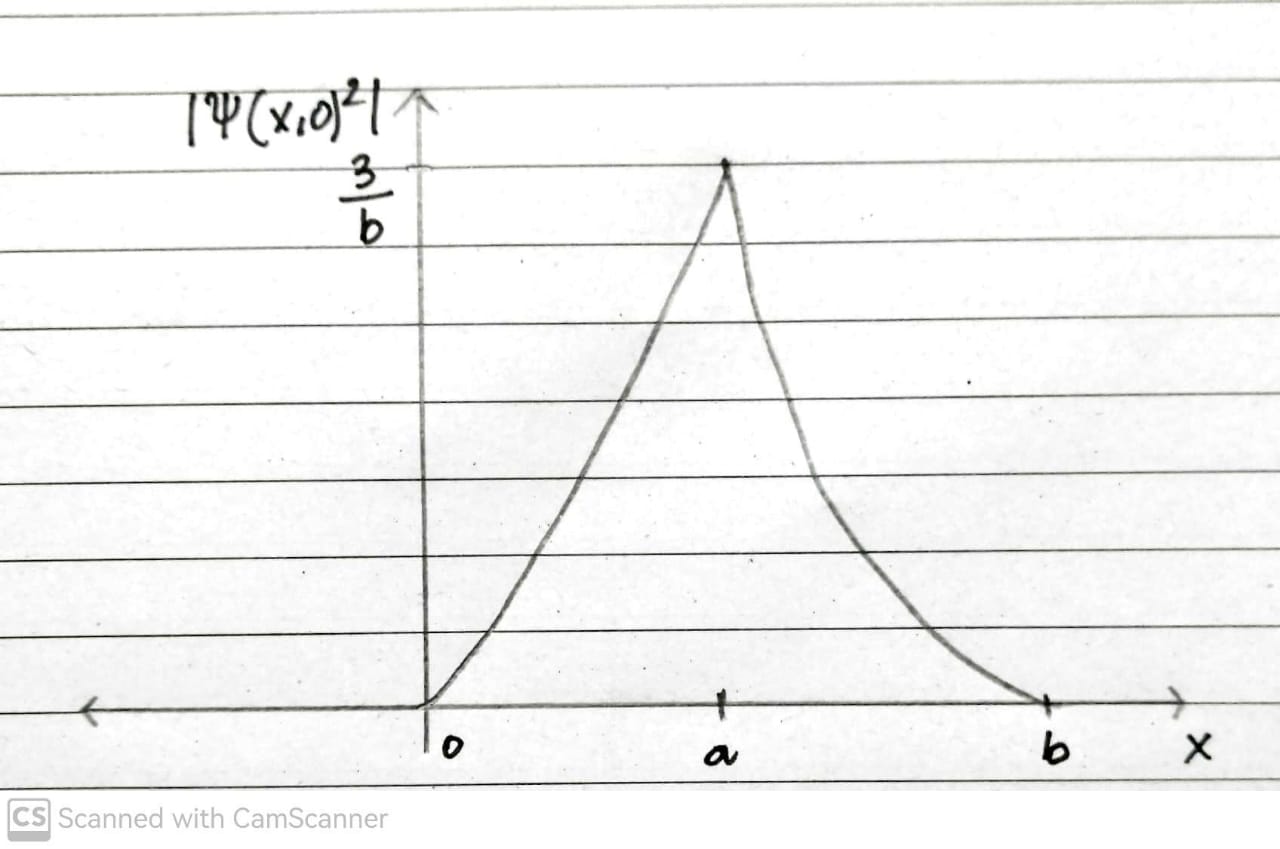 |Ψ(x,0)²|
3
b
0 a b x
CS Scanned with CamScanner